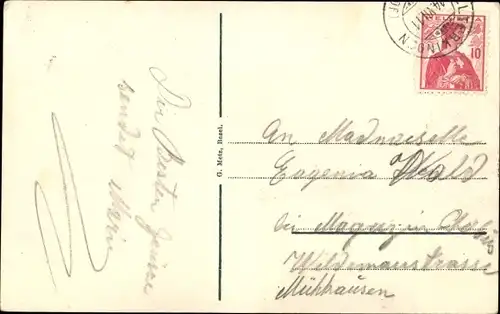 Die Besten Grüsse
sendet
G. Metz, Basel.
HELVETIA
10
An Madmoiselle
Eugenia Wald
bei Magazin
Wildemanstrasse
Mühhausen